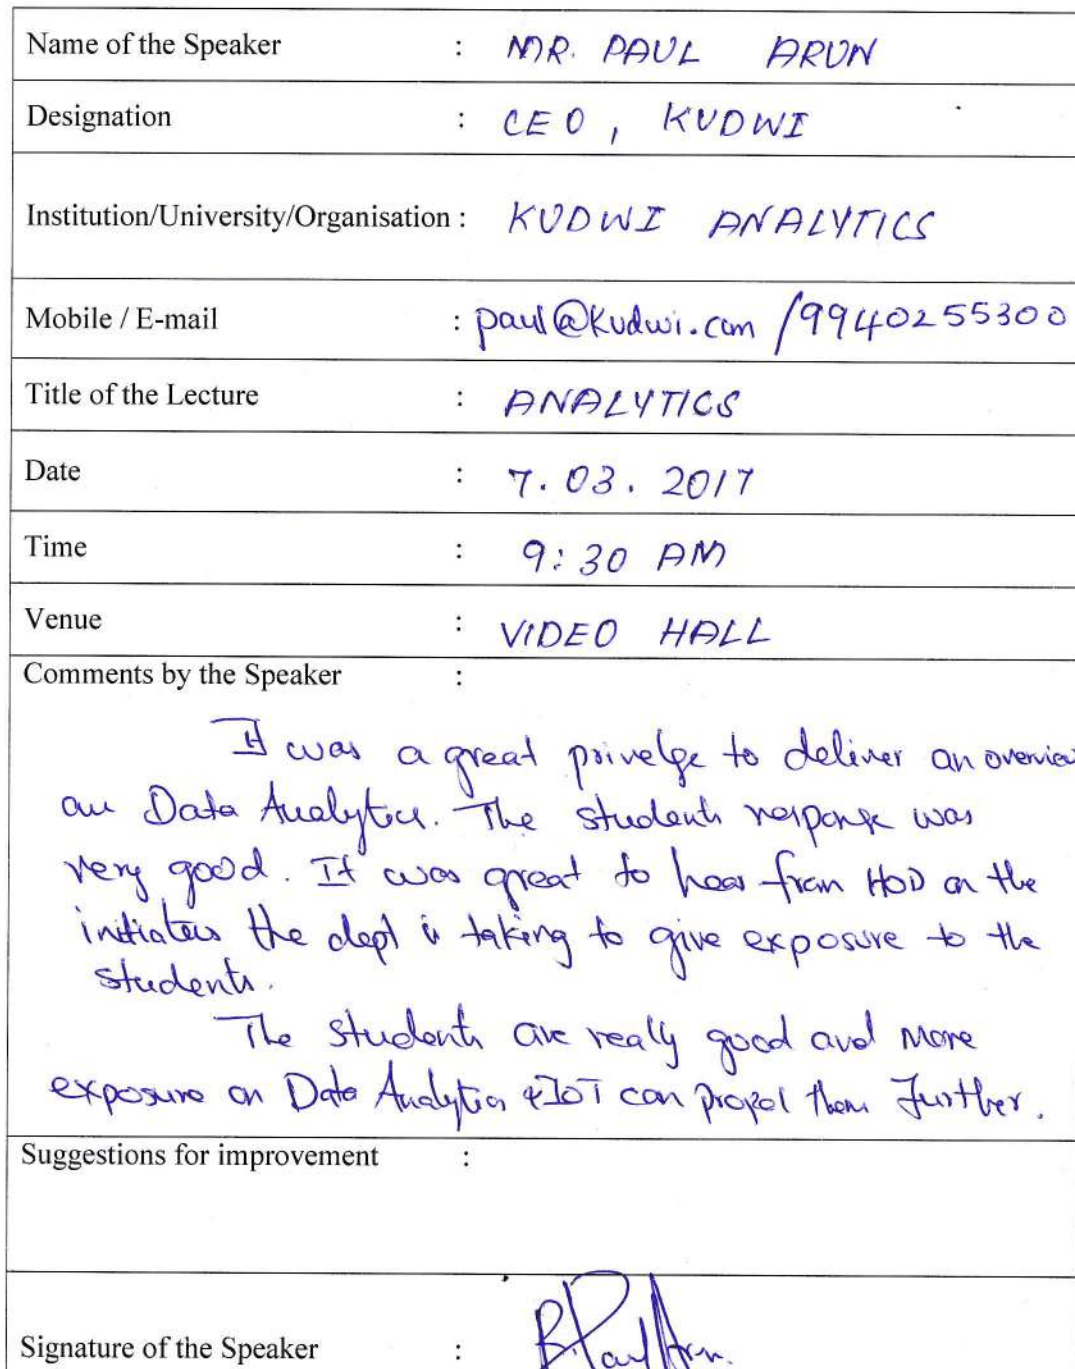 Name of the Speaker : MR. PAUL ARUN
Designation : CEO, KUDWI
Institution/University/Organisation : KUDWI ANALYTICS
Mobile / E-mail : paul@kudwi.com /9940255300
Title of the Lecture : ANALYTICS
Date : 7.03.2017
Time : 9:30 AM
Venue : VIDEO HALL
Comments by the Speaker :
It was a great privelge to deliver an overview
on Data Analytics. The students response was
very good. It was great to hear from HOD on the
initiatives the dept is taking to give exposure to the
students.
The students are really good and more
exposure on Data Analytics & IoT can propel them further.
Suggestions for improvement :
Signature of the Speaker : B. Paul Arun.